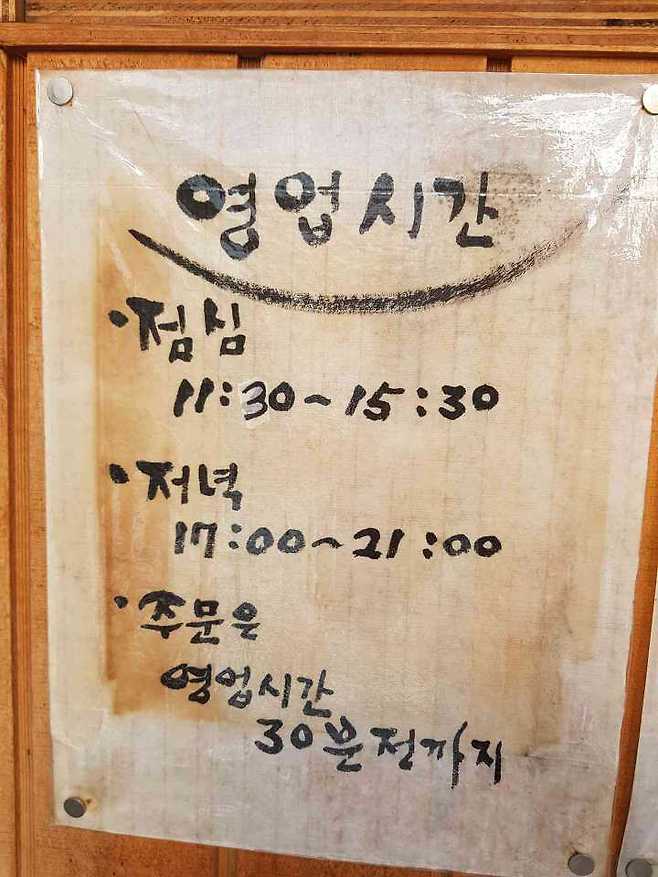 영업시간
·점심
11:30~15:30
·저녁
17:00~21:00
·주문은
영업시간
30분전까지